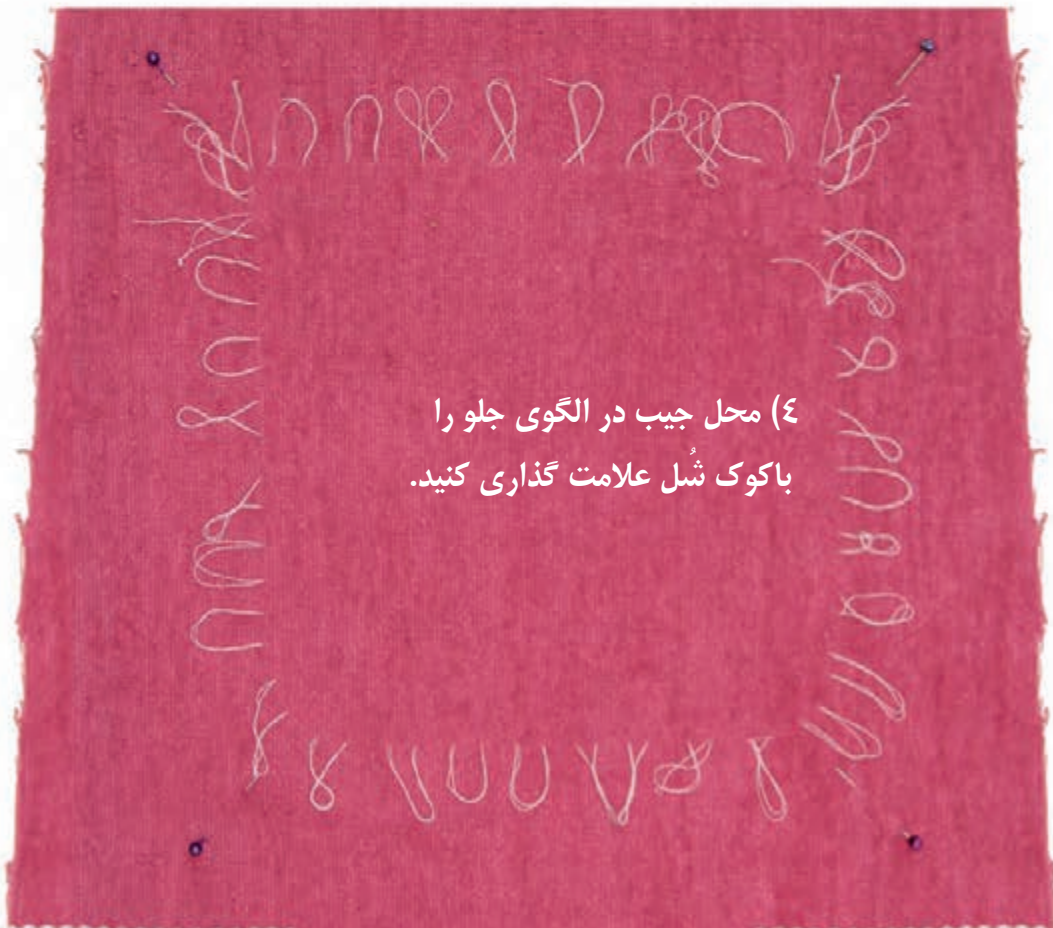 ٤) محل جیب در الگوی جلو را
باکوک شُل علامت گذاری کنید.